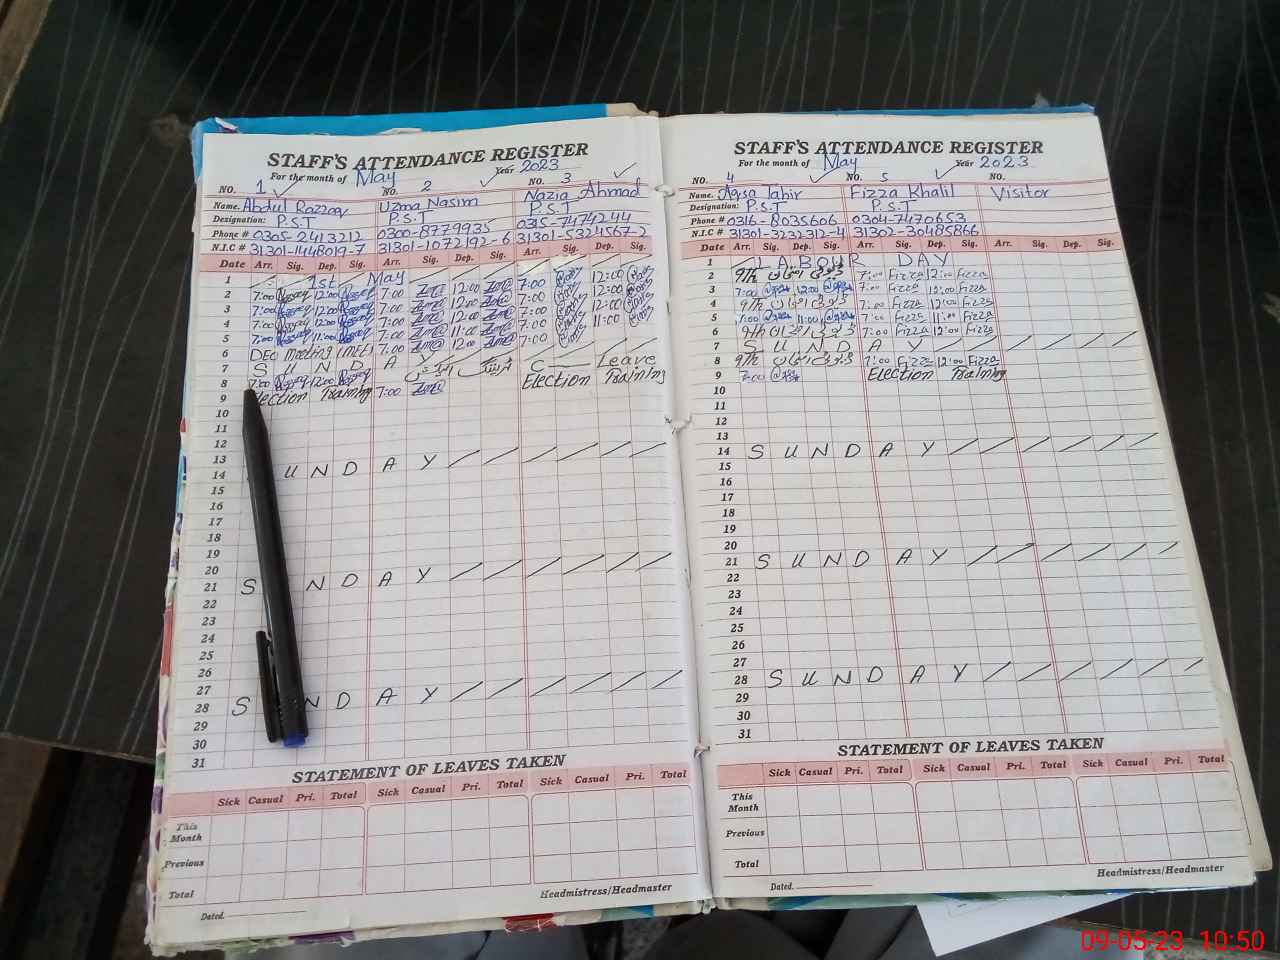 STAFF'S ATTENDANCE REGISTER
For the month of May Year 2023
NO. 1 NO. 2 NO. 3
Name. Abdul Razzaq Uzma Nasim Nazia Ahmad
Designation: P.S.T P.S.T P.S.T
Phone # 0305-2413212 0300-8779935 0315-7474244
N.I.C # 31301-1448019-7 31301-1072192-6 31301-5324567-2
Date Arr. Sig. Dep. Sig. Arr. Sig. Dep. Sig. Arr. Sig. Dep. Sig.
1 1st May
2 7:00 12:00 7:00 12:00 7:00 12:00
3 7:00 12:00 7:00 12:00 7:00 12:00
4 7:00 12:00 7:00 12:00 7:00 12:00
5 7:00 11:00 7:00 11:00 7:00 11:00
6 DEO meeting 7:00 12:00 C Leave
7 S U N D A Y
8 7:00 12:00 Election Training
9 Election Training 7:00
10
11
12
13
14 S U N D A Y
15
16
17
18
19
20
21 S U N D A Y
22
23
24
25
26
27
28 S U N D A Y
29
30
31
STATEMENT OF LEAVES TAKEN
Sick Casual Pri. Total Sick Casual Pri. Total Sick Casual Pri. Total
This Month
Previous
Total
Headmistress/Headmaster
Dated.
STAFF'S ATTENDANCE REGISTER
For the month of May Year 2023
NO. 4 NO. 5 NO.
Name. Aqsa Tahir Fizza Khalil Visitor
Designation: P.S.T P.S.T
Phone # 0316-8035606 0304-7470653
N.I.C # 31301-3232312-4 31302-30485866
Date Arr. Sig. Dep. Sig. Arr. Sig. Dep. Sig. Arr. Sig. Dep. Sig.
1 LABOUR DAY
2 9th ڈیوٹی امتحان 7:00 Fizza 12:00 Fizza
3 7:00 12:00 7:00 Fizza 12:00 Fizza
4 9th ڈیوٹی امتحان 7:00 Fizza 12:00 Fizza
5 7:00 11:00 7:00 Fizza 11:00 Fizza
6 9th ڈیوٹی امتحان 7:00 Fizza 12:00 Fizza
7 S U N D A Y
8 9th ڈیوٹی امتحان 7:00 Fizza 12:00 Fizza
9 7:00 Election Training
10
11
12
13
14 S U N D A Y
15
16
17
18
19
20
21 S U N D A Y
22
23
24
25
26
27
28 S U N D A Y
29
30
31
STATEMENT OF LEAVES TAKEN
Sick Casual Pri. Total Sick Casual Pri. Total Sick Casual Pri. Total
This Month
Previous
Total
Headmistress/Headmaster
Dated.
09-05-23 10:50